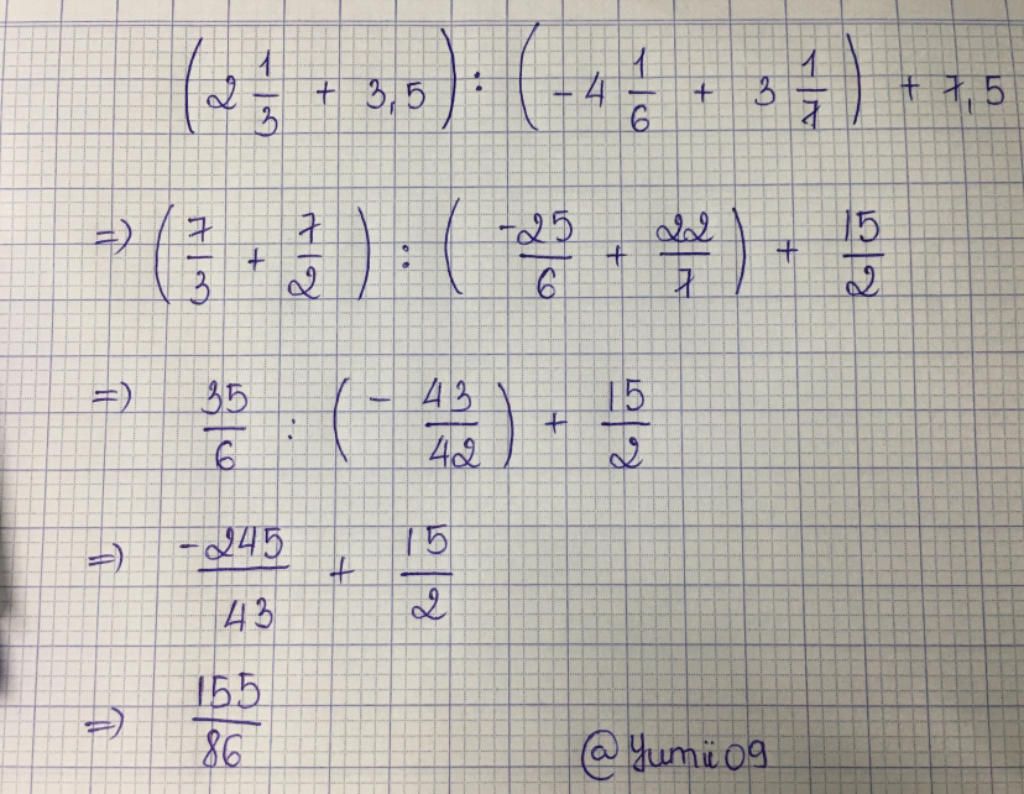 (2 1/3 + 3,5) : (-4 1/6 + 3 1/7) + 7,5
=) (7/3 + 7/2) : (-25/6 + 22/7) + 15/2
=) 35/6 : (- 43/42) + 15/2
=) -245/43 + 15/2
=) 155/86
@Yumii09